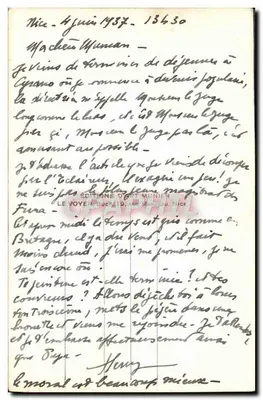 Nice - 4 juin 1937 - 13h30
Ma chère Maman -
Je viens de terminer de déjeuner à
Cyrano où je commence à devenir populaire,
la direction m'appelle Monsieur le Juge
long comme le bras, et c'est Monsieur le Juge
par ci, Monsieur le Juge par là, c'est
amusant au possible -
Je l'article que je viens de découper
dans l'Eclaireur, exagère un peu! je
ne suis pas le plus jeune magistrat de
France -
EDITIONS D'ART MUNIER
Cet après midi le temps est gris comme en
Bretagne, il y a du vent, et il fait
moins chaud, j'irai me promener, je ne
sais encore où -
Ta peinture est-elle terminée? et tes
couvreurs? Allons dépêche toi à
ton trousseau, mets le dans une
et viens me rejoindre - Je t'attends
et je t'embrasse affectueusement ainsi
que Papa -
Henry
le moral est beaucoup mieux -